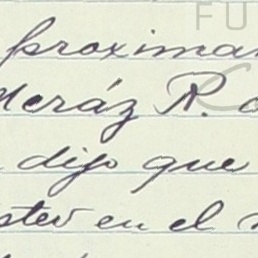 FU
proxima
deráz R.
dijo que
ste en el